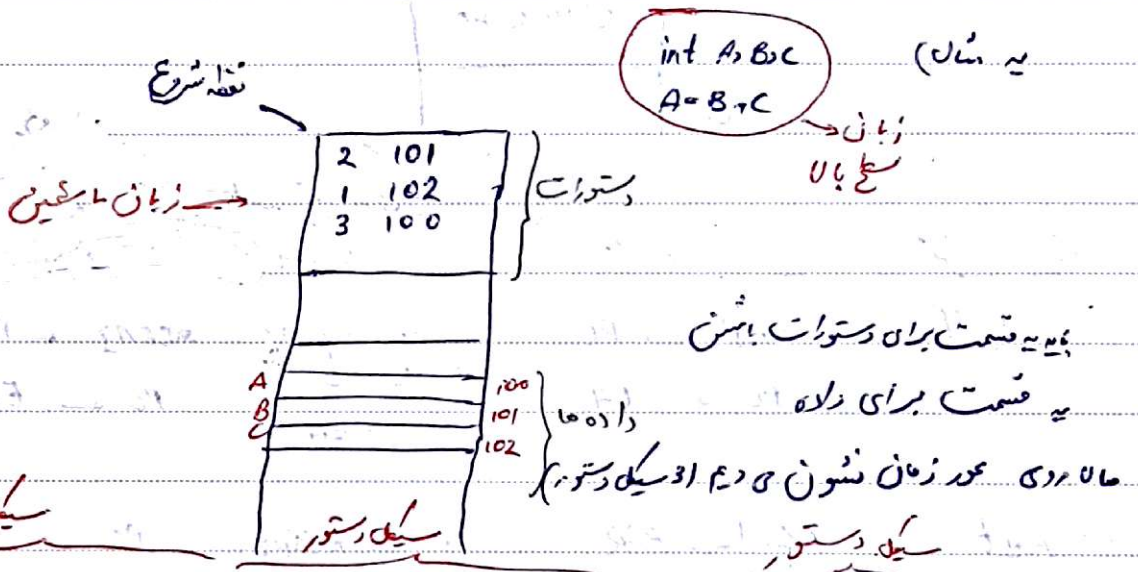 یه مثال)
int A,B,C
A=B+C
زبان سطح بالا
نقطه شروع
2 101
1 102
3 100
دستورات
زبان ماشین
باید یه قسمت برای دستورات باشن
یه قسمت برای داده
A 100
B 101
C 102
داده ها
حالا روی محور زمان نشون می دیم (3 سیکل دستور)
سیکل دستور
سیکل دستور